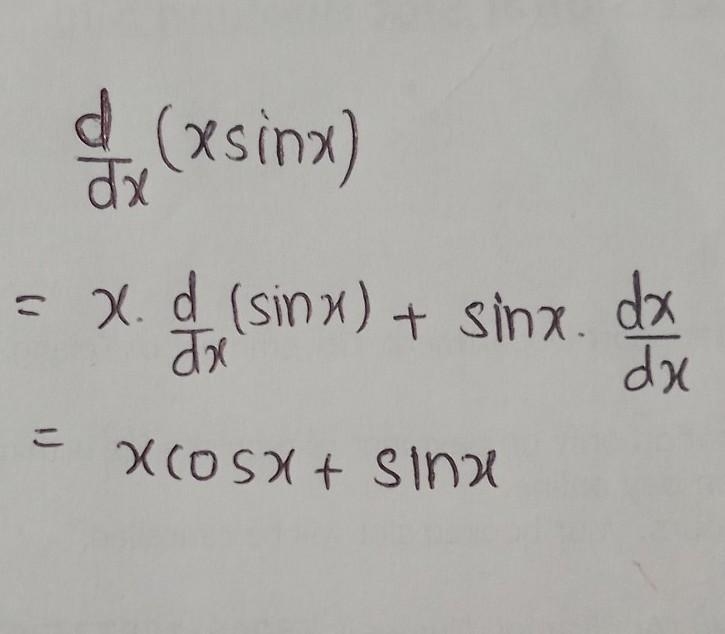 d/dx (xsinx)
= x. d/dx (sinx) + sinx. dx/dx
= xcosx + sinx